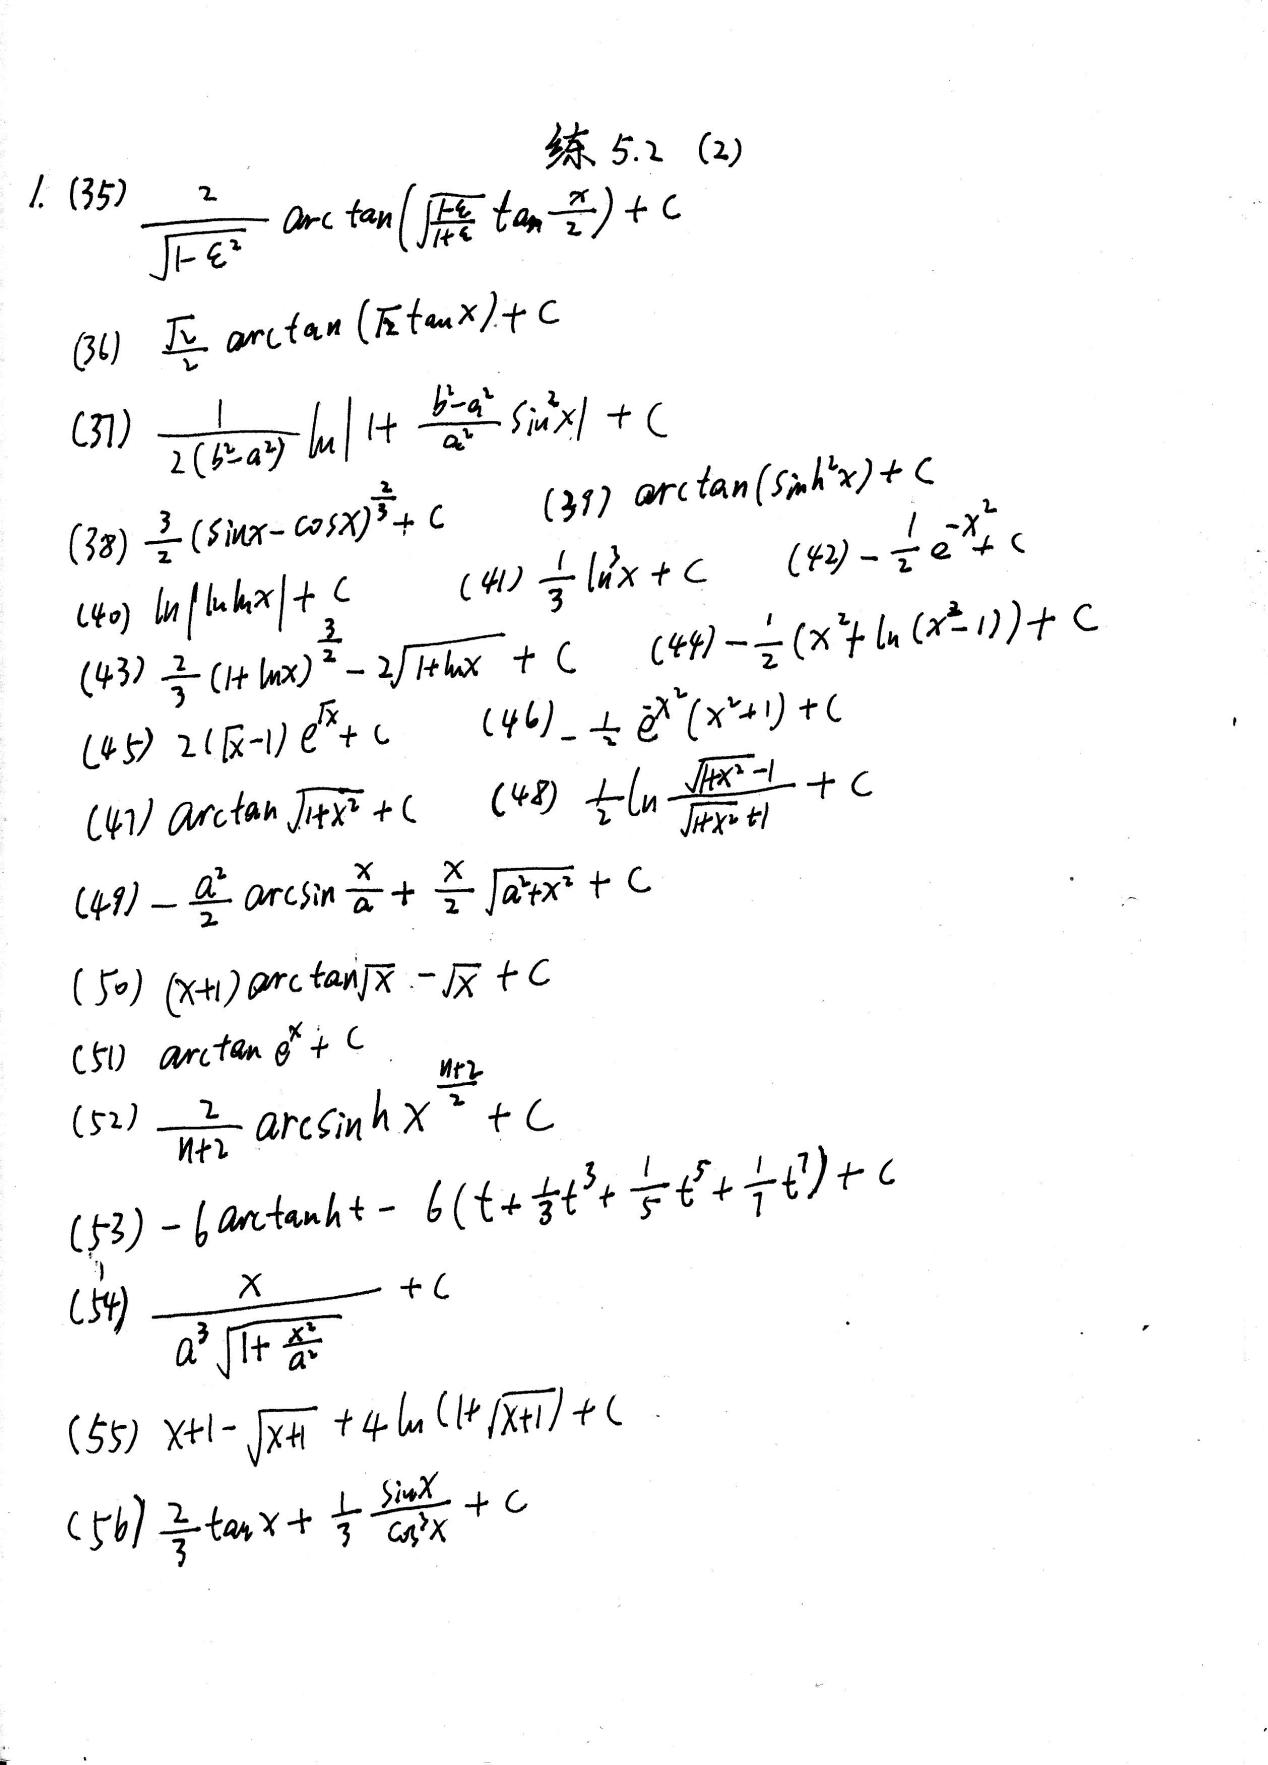 练 5.2 (2)
1. (35) \frac{2}{\sqrt{1-ε^2}} arctan(\sqrt{\frac{1-ε}{1+ε}} tan \frac{x}{2}) + C
(36) \frac{\sqrt{2}}{2} arctan(\sqrt{2} tanx) + C
(37) \frac{1}{2(b^2-a^2)} ln|1+ \frac{b^2-a^2}{a^2} sin^2x| + C
(38) \frac{3}{2}(sinx-cosx)^{\frac{2}{3}} + C (39) arctan(sinh^2x) + C
(40) ln|lnlnx| + C (41) \frac{1}{3} ln^3x + C (42) -\frac{1}{2} e^{-x^2} + C
(43) \frac{2}{3}(1+lnx)^{\frac{3}{2}} - 2\sqrt{1+lnx} + C (44) -\frac{1}{2}(x^2+ln(x^2-1)) + C
(45) 2(\sqrt{x}-1)e^{\sqrt{x}} + C (46) -\frac{1}{2} e^{-x^2}(x^2+1) + C
(47) arctan\sqrt{1+x^2} + C (48) \frac{1}{2} ln \frac{\sqrt{1+x^2}-1}{\sqrt{1+x^2}+1} + C
(49) -\frac{a^2}{2} arcsin \frac{x}{a} + \frac{x}{2} \sqrt{a^2+x^2} + C
(50) (x+1)arctan\sqrt{x} - \sqrt{x} + C
(51) arctan e^x + C
(52) \frac{2}{n+2} arcsinh x^{\frac{n+2}{2}} + C
(53) -6arctanht - 6(t+\frac{1}{3}t^3+\frac{1}{5}t^5+\frac{1}{7}t^7) + C
(54) \frac{x}{a^3\sqrt{1+\frac{x^2}{a^2}}} + C
(55) x+1-\sqrt{x+1} + 4ln(1+\sqrt{x+1}) + C
(56) \frac{2}{3} tanx + \frac{1}{3} \frac{sinx}{cos^3x} + C